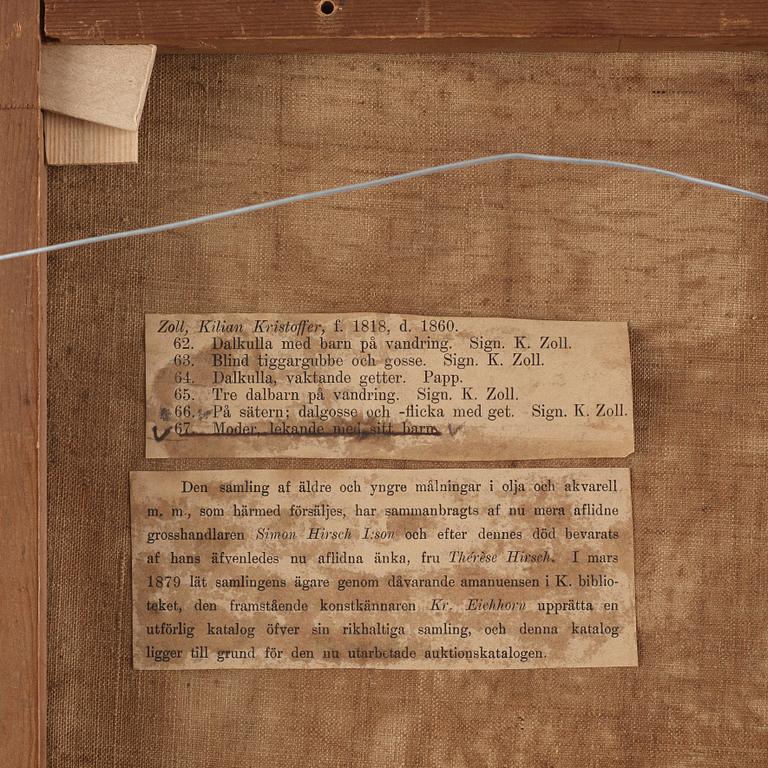 Zoll, Kilian Kristoffer, f. 1818, d. 1860.
62. Dalkulla med barn på vandring. Sign. K. Zoll.
63. Blind tiggargubbe och gosse. Sign. K. Zoll.
64. Dalkulla, vaktande getter. Papp.
65. Tre dalbarn på vandring. Sign. K. Zoll.
66. På sätern; dalgosse och -flicka med get. Sign. K. Zoll.
67. Moder, lekande med sitt barn.
Den samling af äldre och yngre målningar i olja och akvarell
m. m., som härmed försäljes, har sammanbragts af nu mera aflidne
grosshandlaren Simon Hirsch I:son och efter dennes död bevarats
af hans äfvenledes nu aflidna änka, fru Thérèse Hirsch. I mars
1879 lät samlingens ägare genom dåvarande amanuensen i K. biblio-
teket, den framstående konstkännaren Kr. Eichhorn upprätta en
utförlig katalog öfver sin rikhaltiga samling, och denna katalog
ligger till grund för den nu utarbetade auktionskatalogen.